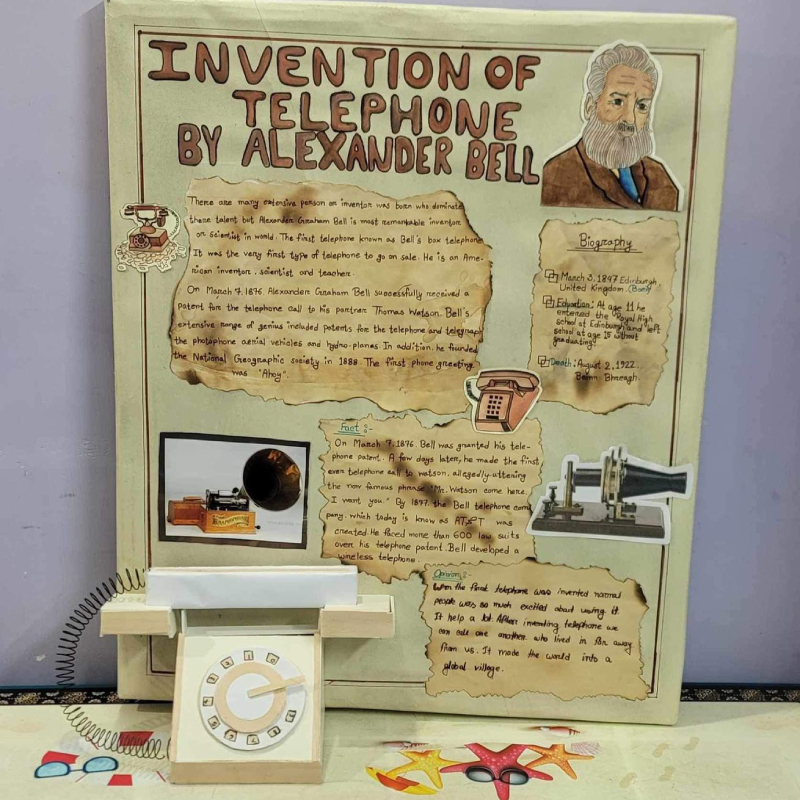 INVENTION OF
TELEPHONE
BY ALEXANDER BELL
There are many extensive person or inventor was born who dominate
there talent but Alexander Graham Bell is most remarkable inventor
or scientist in world. The first telephone known as Bell's box telephone
It was the very first type of telephone to go on sale. He is an Ame-
rican inventor, scientist and teacher.
On March 7, 1876, Alexander Graham Bell successfully received a
patent for the telephone call to his partner Thomas Watson. Bell's
extensive range of genius included patents for the telephone and telegraph
the photophone aerial vehicles and hydro-planes. In addition, he founded
the National Geographic society in 1888. The first phone greeting
was "Ahoy".
Biography
March 3, 1847 Edinburgh
United Kingdom (Born)
Education: At age 11 he
entered the Royal High
school at Edinburgh and left
school at age 15 without
graduating.
Death: August 2, 1922.
Beinn Bhreagh.
Fact :-
On March 7, 1876, Bell was granted his tele-
phone patent. A few days later, he made the first
ever telephone call to watson, allegedly uttening
the now famous phrase "Mr. Watson come here.
I want you." By 1877, the Bell telephone com
pany, which today is know as AT&T was
created. He faced more than 600 law suits
over his telephone patent. Bell developed a
wireless telephone.
Opinion :-
When the first telephone was invented normal
people was so much excited about using it.
It help a lot. After inventing telephone we
can call one another who lived in far away
from us. It made the world into a
global village.